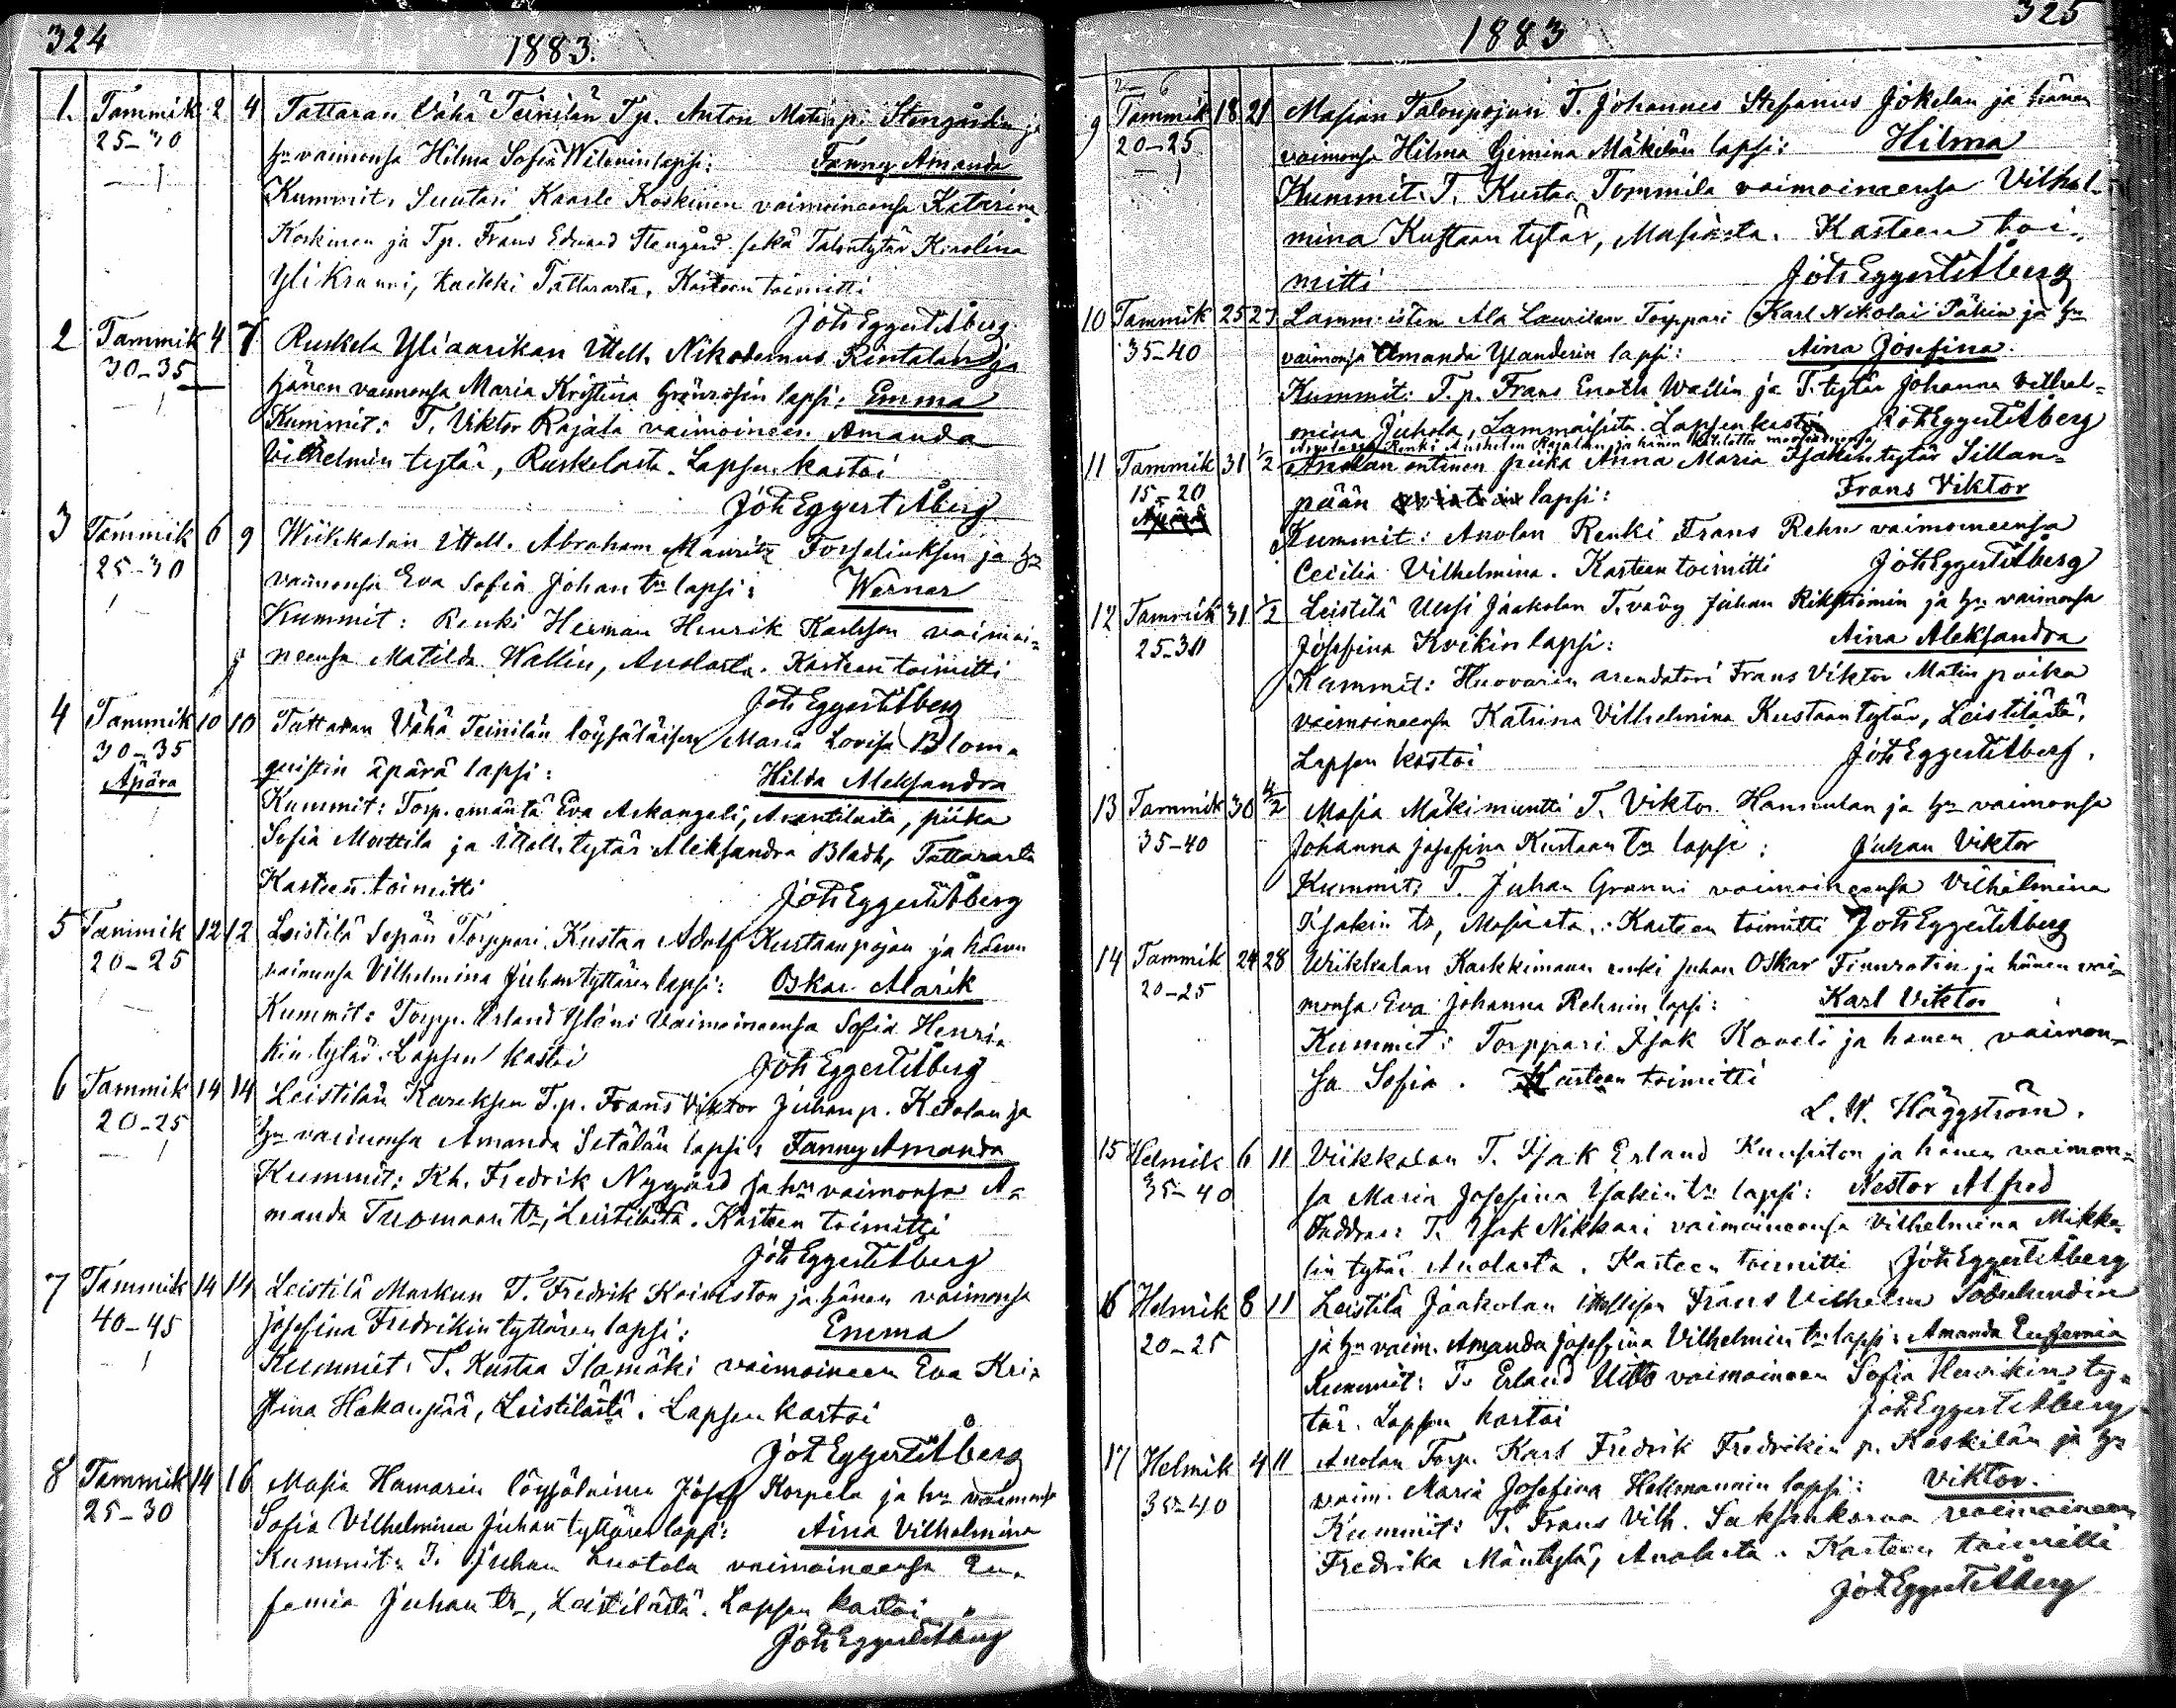 324
1883.
1. Tammik 2 4 Tattaran Vähä Teinilän Tp. Anton Matinp. Stengårdin ja
25-30 hn vaimonsa Hilma Sofia Wilenin lapsi: Fanny Amanda
Kummit: Suutari Kaarle Koskinen vaimoineensa Katarina
Koskinen ja Tp. Frans Edvard Stengård sekä Talontytär Karolina
Yli Kranni, kaikki Tattarasta. Kasteen toimitti
Joh Eggert Åberg
2 Tammik 4 7 Ruskela Yliaarikan Ittell. Nikodemus Rintalan ja
30-35 hänen vaimonsa Maria Kristina lapsi: Emma
Kummit: T. Viktor Rajala vaimoineen Amanda
Vilhelmin tytär, Ruskelasta. Lapsen kastoi
Joh Eggert Åberg
3 Tammik 6 9 Wiikkalan Ittell. Abraham Mauritz Forsseliuksen ja hn
25-30 vaimonsa Eva Sofia Johan tr lapsi: Werner
Kummit: Renki Herman Henrik Karlsson vaimoi-
neensa Matilda Wallin, Anolasta. Kasteen toimitti
Joh Eggert Åberg
4 Tammik 10 10 Tattaran Vähä Teinilän löysäläisen Maria Lovisa Blom-
30-35 quistin äpärä lapsi: Hilda Aleksandra
Äpärä
Kummit: Torp. emäntä Eva Arkangeli, Anantilasta, piika
Sofia Mattila ja Ittell. tytär Aleksandra Bladh, Tattarasta
Kasteen toimitti Joh Eggert Åberg
5 Tammik 12 12 Leistilä Sepän Torppari Kustaa Adolf Kustaanpojan ja hänen
20-25 vaimonsa Vilhelmina Juhantyttären lapsi: Oskar Alarik
Kummit: Torpp. Erland Yläni Vaimoineensa Sofia Henri-
kin tytär. Lapsen kastoi Joh Eggert Åberg
6 Tammik 14 14 Leistilän Kareksen T.p. Frans Viktor Juhanp. Ketolan ja
20-25 hn vaimonsa Amanda Setälän lapsi: Fanny Amanda
Kummit: Kh. Fredrik Nygård ja hn vaimonsa A-
manda Tuomaan tr, Leistilästä. Kasteen toimitti
Joh Eggert Åberg
7 Tammik 14 14 Leistilä Markun T. Fredrik Koiviston ja hänen vaimonsa
40-45 Josefina Fredrikin tyttären lapsi: Emma
Kummit: T. Kustaa Ilamäki vaimoineen Eva Kri-
stina Hakanpää, Leistilästä. Lapsen kastoi
Joh Eggert Åberg
8 Tammik 14 16 Masia Hamarin löysäläinen Josef Korpela ja hn vaimonsa
25-30 Sofia Vilhelmina Juhan tyttären lapsi: Aina Vilhelmina
Kummit: T. Juhan Luotola vaimoineensa Eu-
femia Juhan tr, Leistilästä. Lapsen kastoi
Joh Eggert Åberg
325
1883
9 Tammik 18 21 Masian Talonpojan T. Johannes Stefanus Jokelan ja hänen
20-25 vaimonsa Hilma Gemina Mäkilän lapsi: Hilma
Kummit: T. Kustaa Tommila vaimoineensa Vilhel-
mina Kustaan tytär, Masiasta. Kasteen toi-
mitti Joh Eggert Åberg
10 Tammik 25 27 Lammaisten Ala Laurilan Torppari Karl Nikolai Päkin ja hn
35-40 vaimonsa Amanda Ylanderin lapsi: Aina Josefina.
Kummit: T.p. Frans Enoch Wallin ja T. tytär Johanna Vilhel-
mina Juhola, Lammaisista. Lapsen kastoi Joh Eggert Åberg
Renki Rajalan ja hänen
11 Tammik 31 1/2 Anolan entinen piika Anna Maria Isakin tytär Sillan-
15-20 pään lapsi: Frans Viktor
Kummit: Anolan Renki Frans Rehn vaimoineensa
Cecilia Vilhelmina. Kasteen toimitti Joh Eggert Åberg
12 Tammik 31 1/2 Leistilä Ulssi Jaakolan T. vävy Juhan Rikströmin ja hn vaimonsa
25-30 Josefina Kvikin lapsi: Aina Aleksandra
Kummit: Huovarin arendatori Frans Viktor Matin poika
vaimoineensa Katrina Vilhelmina Kustaan tytär, Leistilästä.
Lapsen kastoi Joh Eggert Åberg.
13 Tammik 30 4/2 Masia Mäkimuntti T. Viktor Hannulan ja hn vaimonsa
35-40 Johanna Josefina Kustaan tr lapsi: Juhan Viktor
Kummit: T. Juhan Granni vaimoineensa Vilhelmina
Isakin tr, Masiasta. Kasteen toimitti Joh Eggert Åberg
14 Tammik 24 28 Wiikkalan Karkkimaan renki Juhan Oskar Finnrotin ja hänen vai-
20-25 monsa Eva Johanna Rehnin lapsi: Karl Viktor
Kummit: Torppari Isak Kaveli ja hänen vaimon-
sa Sofia. Kasteen toimitti
L. W. Häggström.
15 Helmik 6 11 Viikkalan T. Isak Erland Kuusiston ja hänen vaimon-
35-40 sa Maria Josefina Isakin tr lapsi: Nestor Alfred
Faddrar: T. Isak Nikkari vaimoineensa Vilhelmina Mikke-
lin tytär Anolasta. Kasteen toimitti Joh Eggert Åberg
16 Helmik 8 11 Leistilä Jaakolan ittellisen Frans Vilhelm Söderlundin
20-25 ja hn vaim. Amanda Josefina Vilhelmin tr lapsi: Amanda Eufemia
Kummit: T. Erland Utto vaimoineen Sofia Henrikin ty-
tär. Lapsen kastoi Joh Eggert Åberg
17 Helmik 4 11 Anolan Torp. Karl Fredrik Fredrikin p. Koskilän ja hn
35-40 vaim. Maria Josefina Hellmannin lapsi: Viktor.
Kummit: T. Frans Vilh. Saksankorva vaimoineen
Fredrika Mäntylä, Anolasta. Kasteen toimitti
Joh Eggert Åberg